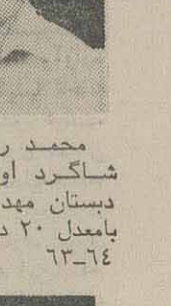 محمد ر
شاگرد او
دبستان مهد
بامعدل ۲۰ د
۶۳_۶۴